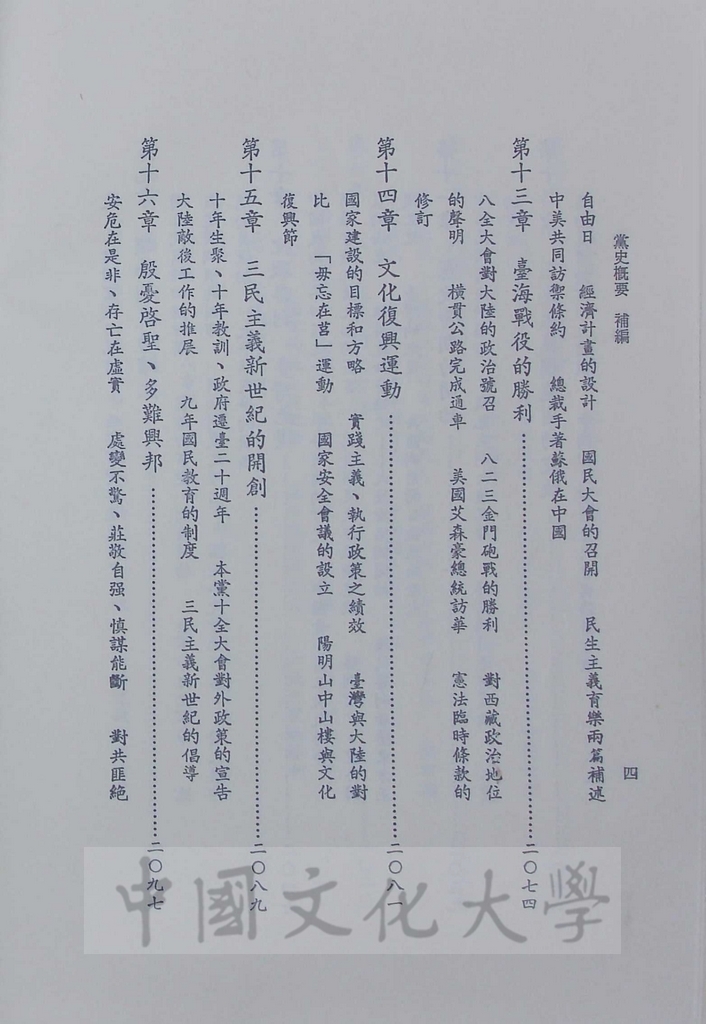 黨史概要　補編
四
自由日　經濟計畫的設計　國民大會的召開　民生主義育樂兩篇補述
中美共同訪禦條約　總裁手著蘇俄在中國
第十三章　臺海戰役的勝利……………………二〇七四
八全大會對大陸的政治號召　八二三金門砲戰的勝利　對西藏政治地位
的聲明　橫貫公路完成通車　美國艾森豪總統訪華　憲法臨時條款的
修訂
第十四章　文化復興運動……………………二〇八一
國家建設的目標和方略　實踐主義、執行政策之績效　臺灣與大陸的對
比　「毋忘在莒」運動　國家安全會議的設立　陽明山中山樓與文化
復興節
第十五章　三民主義新世紀的開創……………………二〇八九
十年生聚、十年教訓、政府遷臺二十週年　本黨十全大會對外政策的宣告
大陸敵後工作的推展　九年國民教育的制度　三民主義新世紀的倡導
第十六章　殷憂啓聖、多難興邦……………………二〇九七
安危在是非、存亡在虛實　處變不驚、莊敬自强、慎謀能斷　對共匪絕
中國文化大學